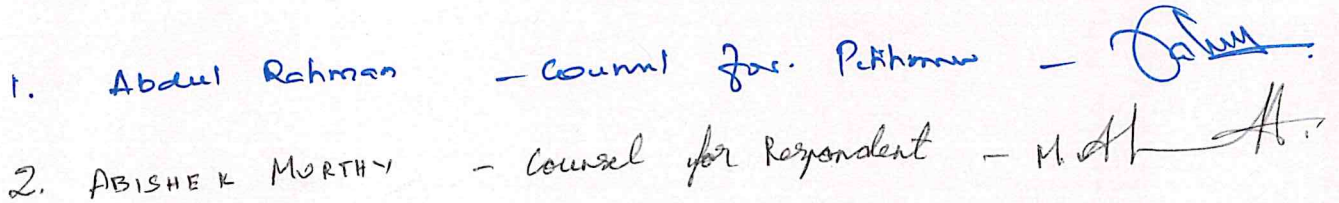 1. Abdul Rahman - Counsel for. Petitioner -
2. ABISHEK MURTHY - Counsel for Respondent - M.